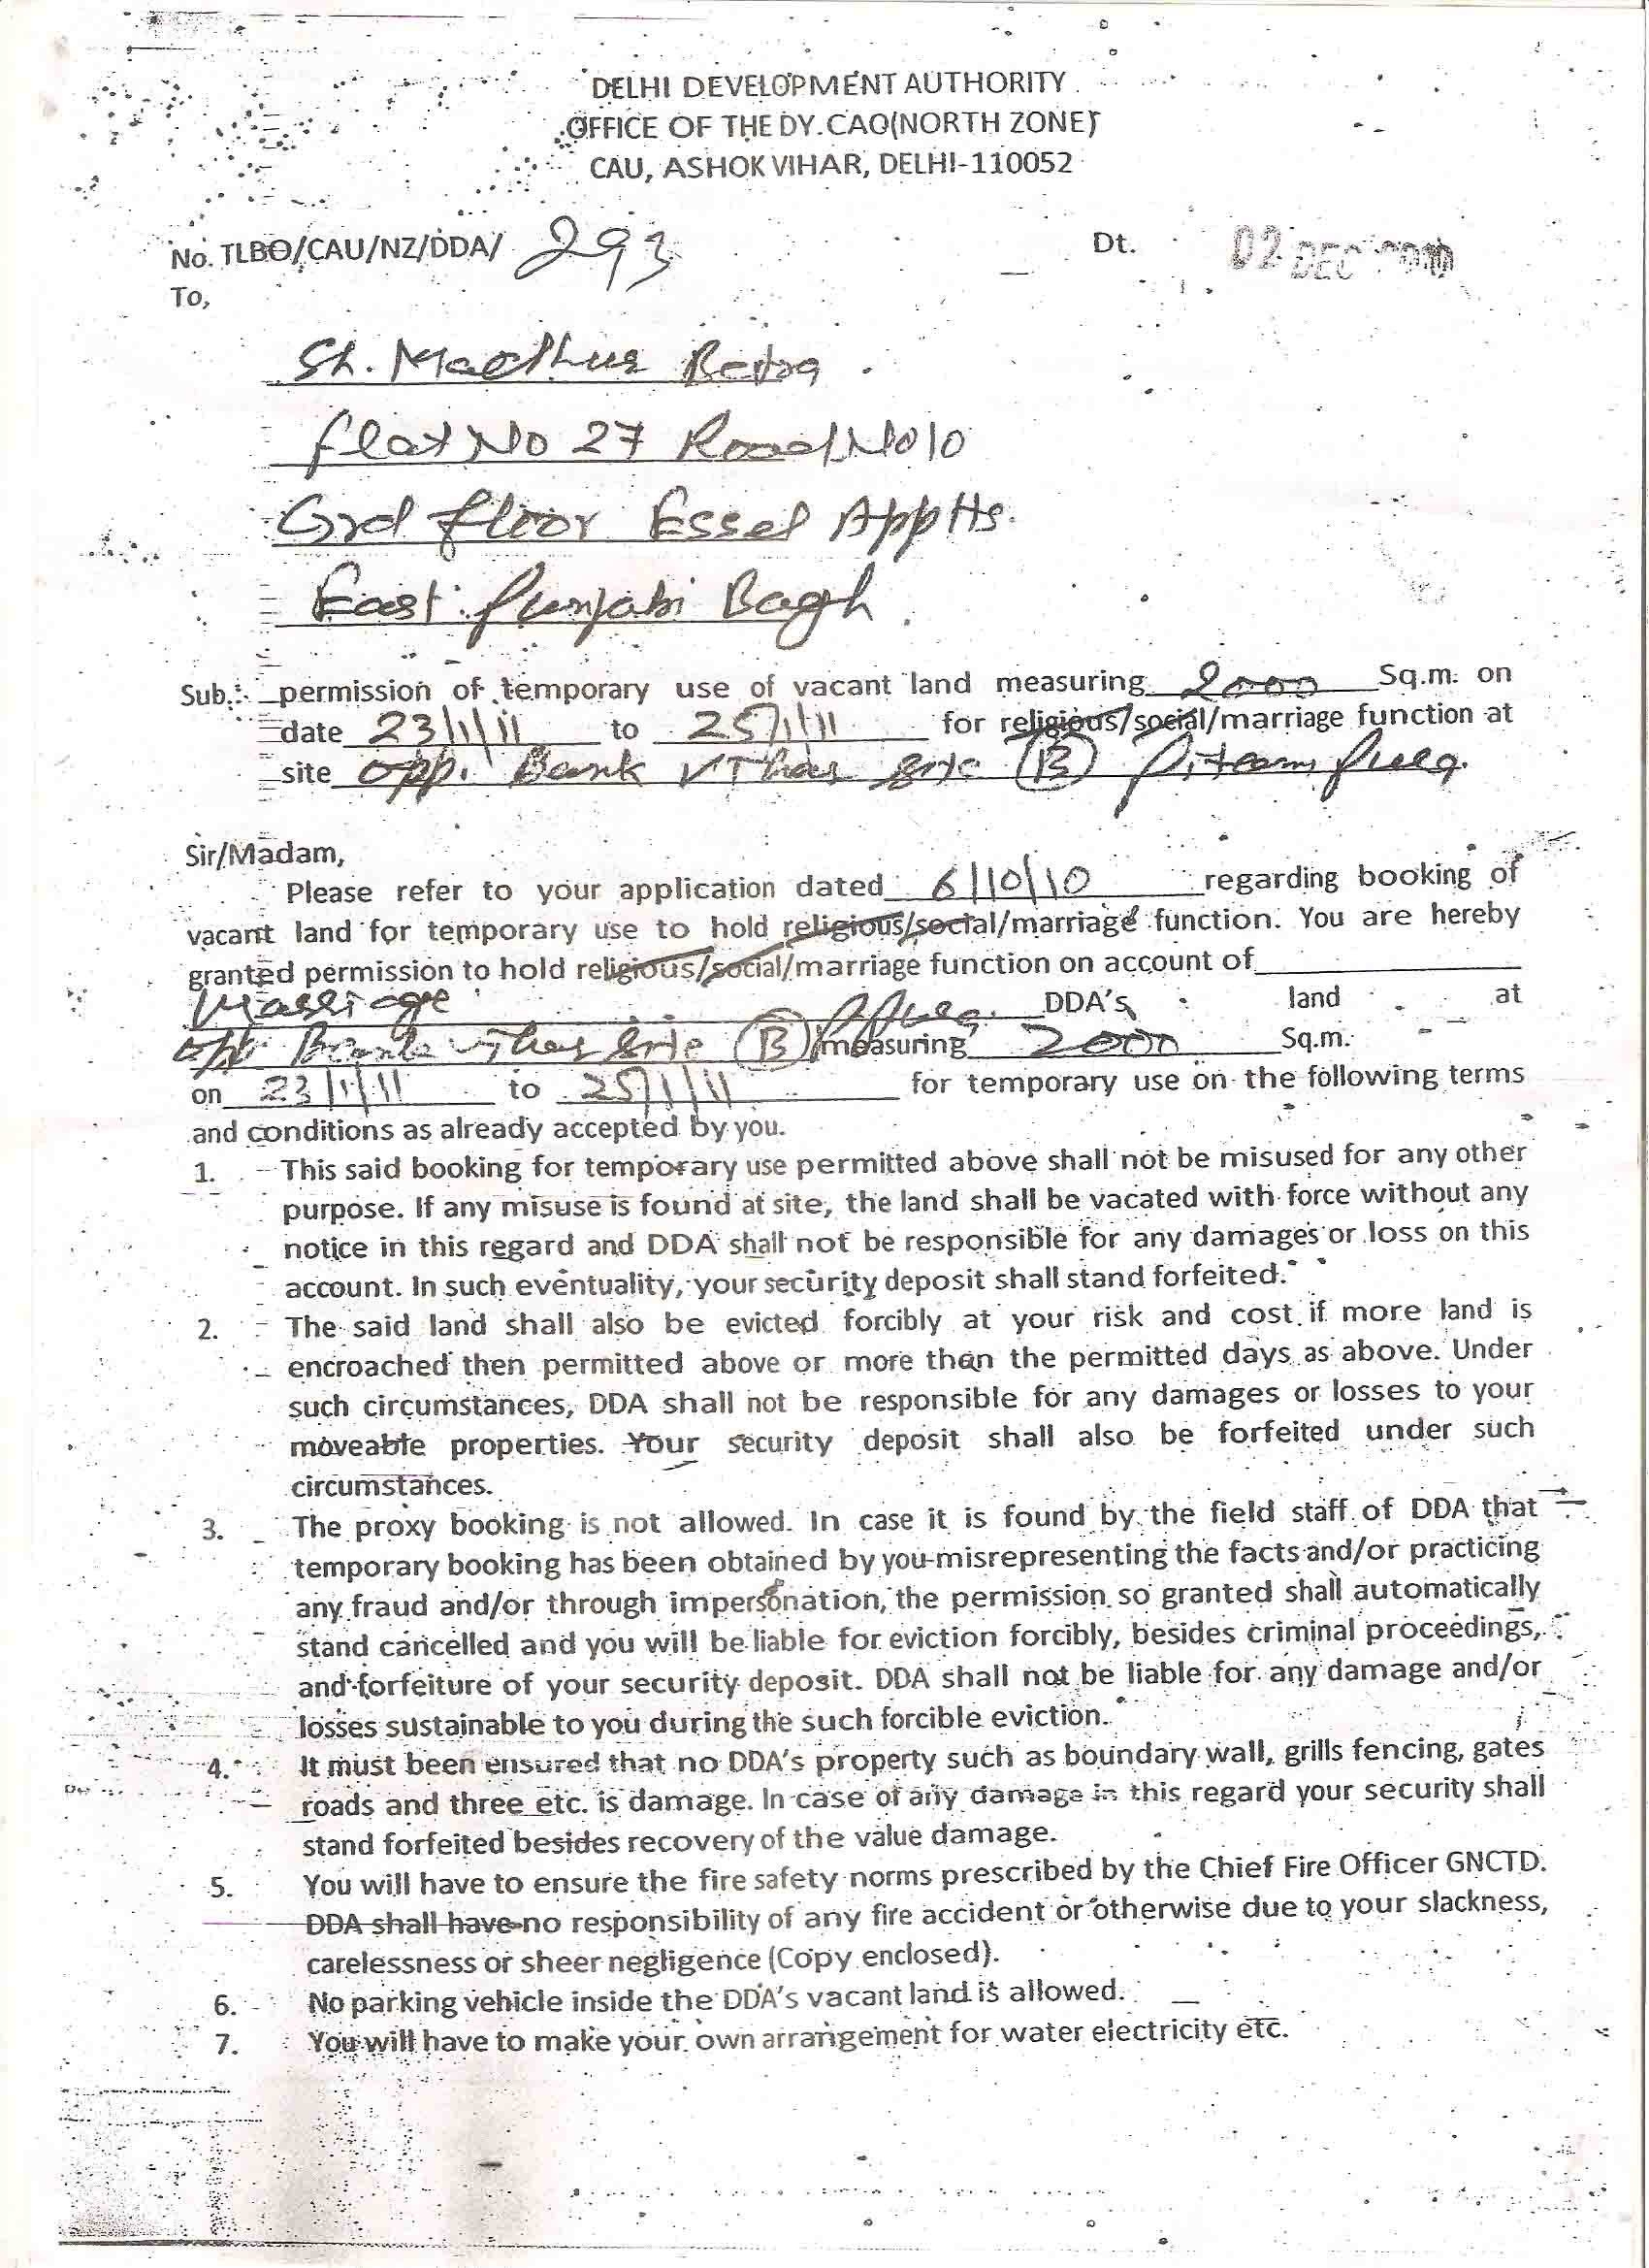 DELHI DEVELOPMENT AUTHORITY
OFFICE OF THE DY.CAO(NORTH ZONE)
CAU, ASHOK VIHAR, DELHI-110052
No. TLBO/CAU/NZ/DDA/ 293 Dt. 02 DEC 2010
To,
Sh. Madhur
Flat No 27 Road No 10
Grd floor Essel Apptts.
East Punjabi Bagh
Sub.: permission of temporary use of vacant land measuring 2000 Sq.m. on
date 23/1/11 to 25/1/11 for religious/social/marriage function at
site opp. Bank Vihar site (B) Pitam pura.
Sir/Madam,
Please refer to your application dated 6/10/10 regarding booking of
vacant land for temporary use to hold religious/social/marriage function. You are hereby
granted permission to hold religious/social/marriage function on account of
Marriage DDA's land at
opp Bank Vihar site (B) P/Pura. measuring 2000 Sq.m.
on 23/1/11 to 25/1/11 for temporary use on the following terms
and conditions as already accepted by you.
1. This said booking for temporary use permitted above shall not be misused for any other
purpose. If any misuse is found at site, the land shall be vacated with force without any
notice in this regard and DDA shall not be responsible for any damages or loss on this
account. In such eventuality, your security deposit shall stand forfeited.
2. The said land shall also be evicted forcibly at your risk and cost if more land is
encroached then permitted above or more than the permitted days as above. Under
such circumstances, DDA shall not be responsible for any damages or losses to your
moveable properties. Your security deposit shall also be forfeited under such
circumstances.
3. The proxy booking is not allowed. In case it is found by the field staff of DDA that
temporary booking has been obtained by you misrepresenting the facts and/or practicing
any fraud and/or through impersonation, the permission so granted shall automatically
stand cancelled and you will be liable for eviction forcibly, besides criminal proceedings,
and forfeiture of your security deposit. DDA shall not be liable for any damage and/or
losses sustainable to you during the such forcible eviction.
4. It must been ensured that no DDA's property such as boundary wall, grills fencing, gates
roads and three etc. is damage. In case of any damage in this regard your security shall
stand forfeited besides recovery of the value damage.
5. You will have to ensure the fire safety norms prescribed by the Chief Fire Officer GNCTD.
DDA shall have no responsibility of any fire accident or otherwise due to your slackness,
carelessness or sheer negligence (Copy enclosed).
6. No parking vehicle inside the DDA's vacant land is allowed.
7. You will have to make your own arrangement for water electricity etc.